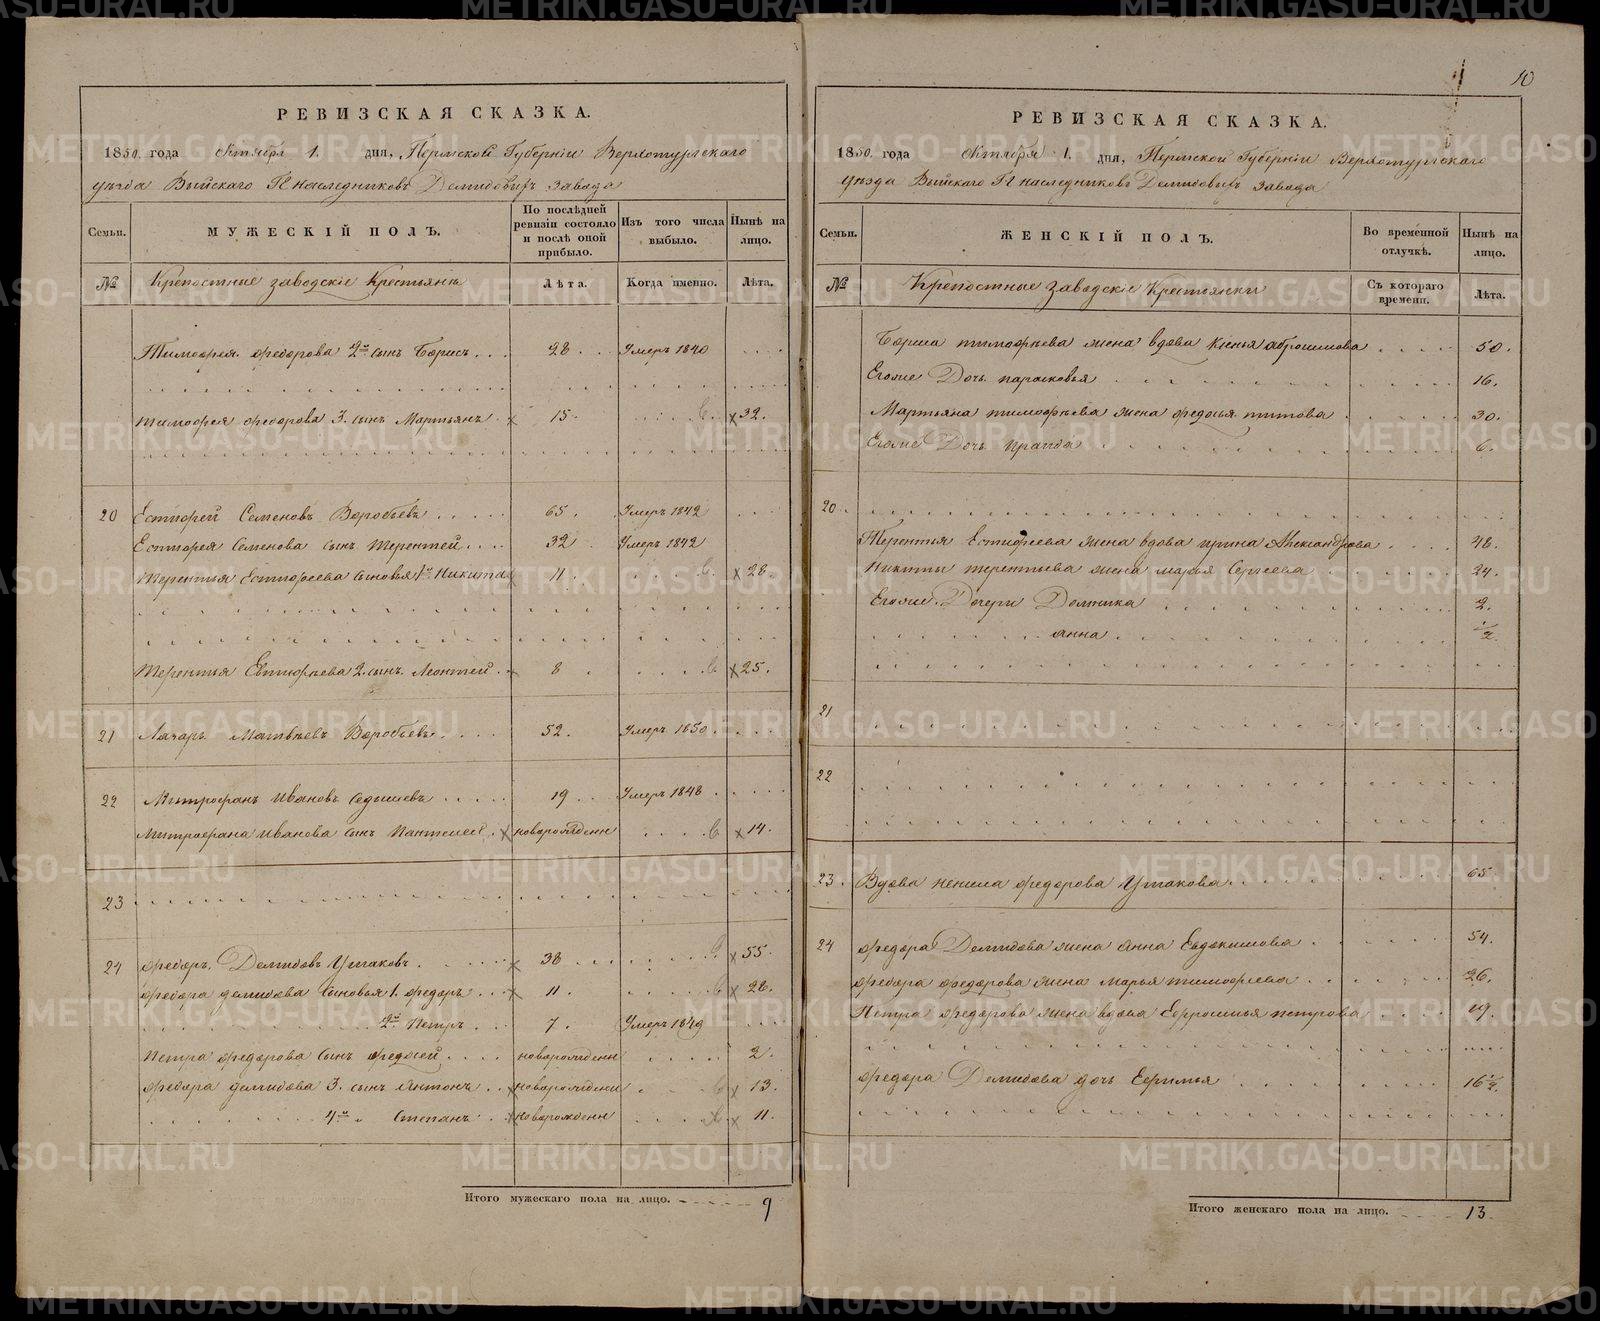 РЕВИЗСКАЯ СКАЗКА.
1850. года Октября 1. дня, Пермской Губерніи Верхотурскаго
уѣзда Выйскаго Гг наследниковъ Демидовыхъ завода
Семьи.
МУЖЕСКІЙ ПОЛЪ.
По послѣдней ревизіи состояло и послѣ оной прибыло.
Изъ того числа выбыло.
Нынѣ на лицо.
№
Крепостные заводскіе Крестьяне
Лѣта.
Когда именно.
Лѣта.
Тимофея федорова 2й сынъ Борисъ 28 Умеръ 1840
тимофея федорова 3. сынъ Мартьянъ 15. 32.
20 Естифей Семеновъ Воробьевъ 65. Умеръ 1842
Естифея Семенова сынъ Терентей 32 Умеръ 1842
Терентья Естифеева сыновья 1й Никита 11. 28.
Терентья Евтифѣева 2. сынъ Леонтей 8 25.
21 Лазарь Матвѣевъ Воробьевъ 52. Умеръ 1850
22 Митрофанъ Ивановъ Седышевъ 19 Умеръ 1848
Митрофана Иванова сынъ Пантелей новорожденн 14.
23
24 федоръ Демидовъ Ушаковъ 38 55
федора демидова сыновья 1. федоръ 11. 28.
2й Петръ 7. Умеръ 1849
Петра федорова сынъ федосей новорожденн 2.
федора демидова 3. сынъ Антонъ новорожденн 13.
4й Степанъ новорожденн 11.
Итого мужескаго пола на лицо. 9
10
РЕВИЗСКАЯ СКАЗКА.
1850. года Октября 1. дня, Пермской Губерніи Верхотурскаго
уѣзда Выйскаго Гг наследниковъ Демидовыхъ завода
Семьи.
ЖЕНСКІЙ ПОЛЪ.
Во временной отлучкѣ.
Нынѣ на лицо.
№
Крепостные заводскіе Крестьянки
Съ котораго времени.
Лѣта.
Бориса тимофѣева жена вдова Ксенья аброшимова 50.
Егоже Дочь парасковья 16.
Мартьяна тимофѣева жена федосья титова 30.
Егоже Дочь Ираида 6.
20.
Терентья Естифеева жена вдова ирина Александрова 48.
Никиты терентьева жена марья Сергеева 24.
Егоже Дочери Домника 2.
анна 1/2
21
22
23. Вдова ненила федорова Ушакова 65.
24 федора Демидова жена анна Евдокимова 54.
федора федорова жена марья тимофеева 26.
Петра федорова жена вдова Ефросинья петрова 19.
федора Демидова дочь Ефимья 16 1/2.
Итого женскаго пола на лицо. 13
METRIKI.GASO-URAL.RU